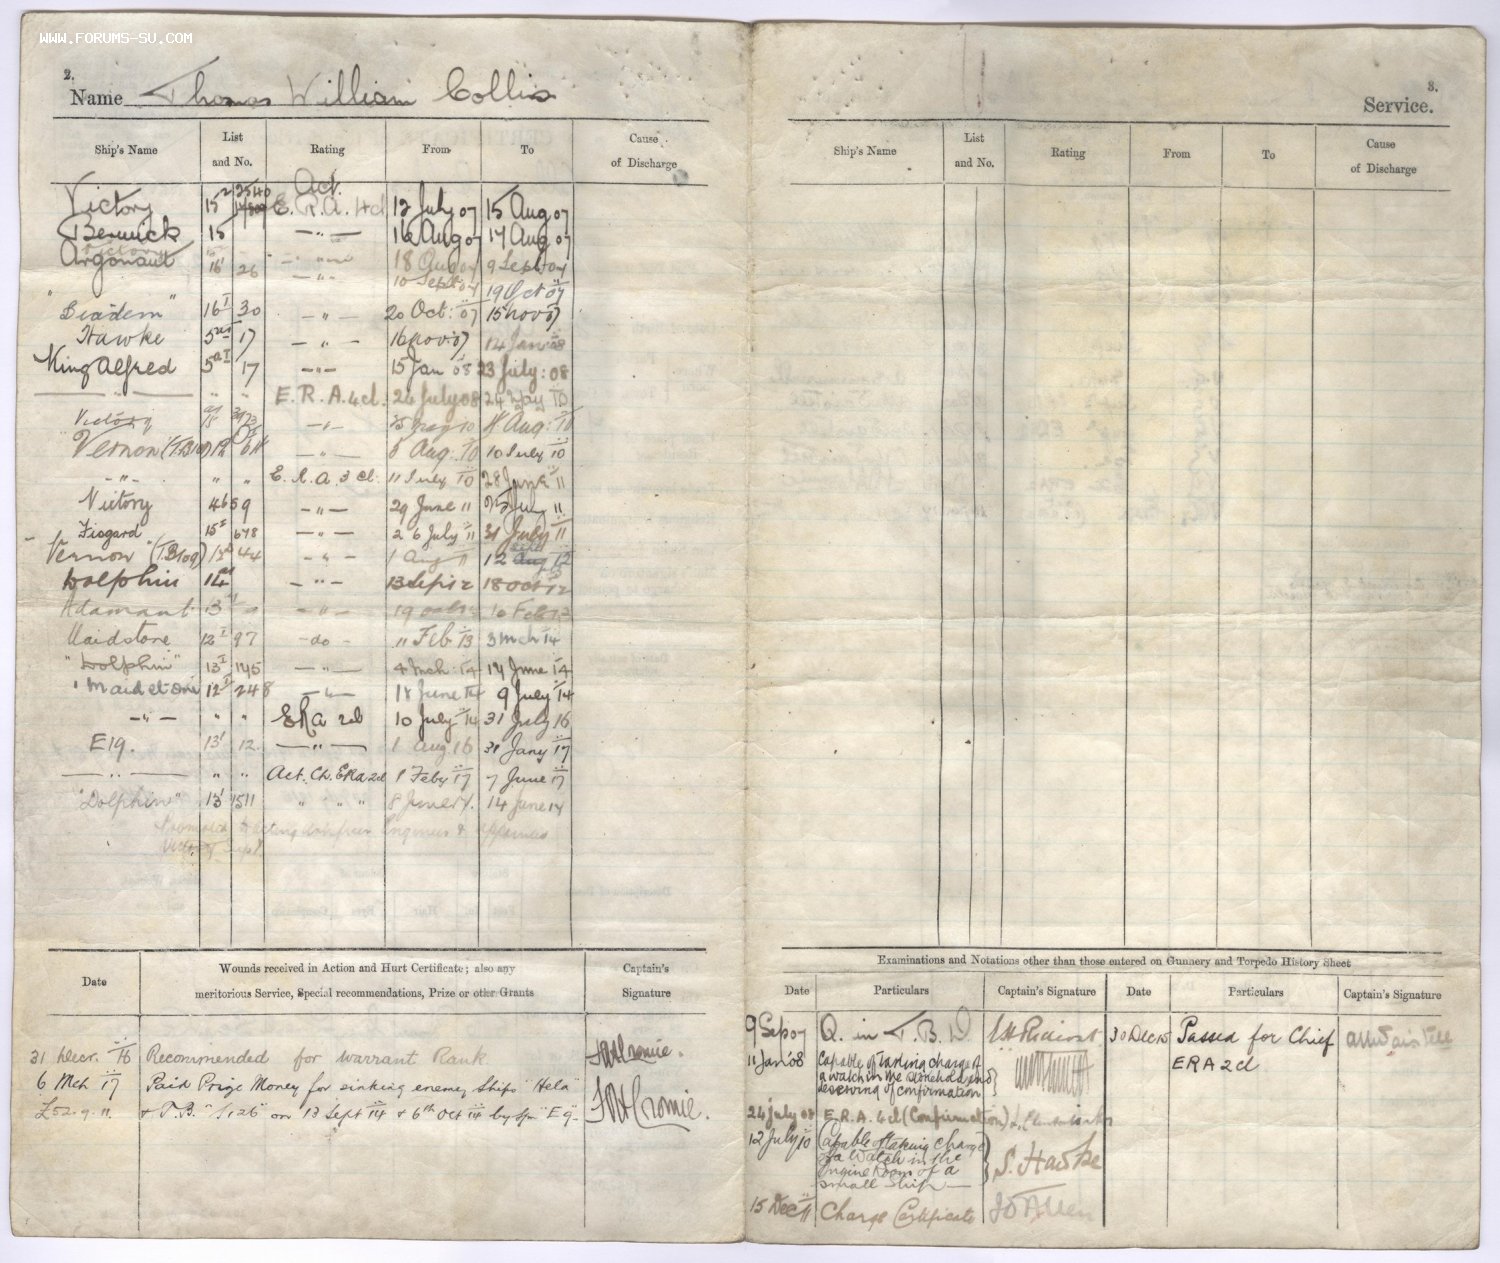 WWW.FORUMS-SU.COM
2.
Name Thomas William Collis
Ship's Name List and No. Rating From To Cause of Discharge
Victory 15² 2540 Act. E.R.A. 4cl 12 July 07 15 Aug 07
Berwick 15 —"— 16 Aug 07 17 Aug 07
Argonaut 16¹ 26 —"— 18 Aug 07 9 Sept 07
—"— 10 Sept 07 19 Oct 07
"Diadem" 16ᴵ 30 —"— 20 Oct: 07 15 Nov 07
Hawke 5 17 —"— 16 Nov 07 14 Jan 08
King Alfred 5 17 —"— 15 Jan 08 23 July: 08
—"— " " E.R.A. 4cl. 24 July 08 24 May 10
Victory 15 —"— 25 May 10 Aug: 10
Vernon —"— Aug. 10 10 July 10
—"— " " E.R.A. 3 cl. 11 July 10 28 June 11
Victory 46 59 —"— 29 June 11 25 July 11
Fisgard 15ᴵ 678 —"— 26 July 11 31 July 11
Vernon (TB109) 44 —"— 1 Aug 11 12 Sept 12
Dolphin —"— 13 Sept 12 18 Oct 12
Adamant 13 —"— 19 Oct 12 10 Feb 13
Maidstone 12ᴵ 97 —do— 11 Feb 13 3 Mch 14
"Dolphin" 13ᴵ 145 —"— 4 Mch 14 17 June 14
"Maidstone 12ᴵ 248 —"— 18 June 14 9 July 14
—"— " " ERA 2cl 10 July 14 31 July 16
E19. 13¹ 12 —"— 1 Aug 16 31 Jany 17
—"— " " Act. Ch. ERA 2cl 1 Feby 17 7 June 17
"Dolphin" 13¹ 1511 " " " 8 June 17. 14 June 17
Promoted to Acting Engineer
Date Wounds received in Action and Hurt Certificate; also any meritorious Service, Special recommendations, Prize or other Grants Captain's Signature
31 Decr. 16 Recommended for Warrant Rank FNACromie.
6 Mch 17 Paid Prize Money for sinking enemy Ships "Hela"
£52.9.11. & T.B. "S.126" on 13 Sept 14 & 6th Oct 14 by S/m "E9". FNACromie.
3.
Service.
Ship's Name List and No. Rating From To Cause of Discharge
Examinations and Notations other than those entered on Gunnery and Torpedo History Sheet
Date Particulars Captain's Signature Date Particulars Captain's Signature
9 Sep 07 Q. in T.B.D. 30 Dec 15 Passed for Chief
ERA 2cl
11 Jan '08 Capable of taking charge of
a watch in the stokehold and
deserving of confirmation
24 July 08 E.R.A. 4cl (Confirmation)
12 July 10 Capable of taking charge
of a Watch in the
Engine Room of a
small Ship — S. Hawke
15 Dec 11 Charge Certificate